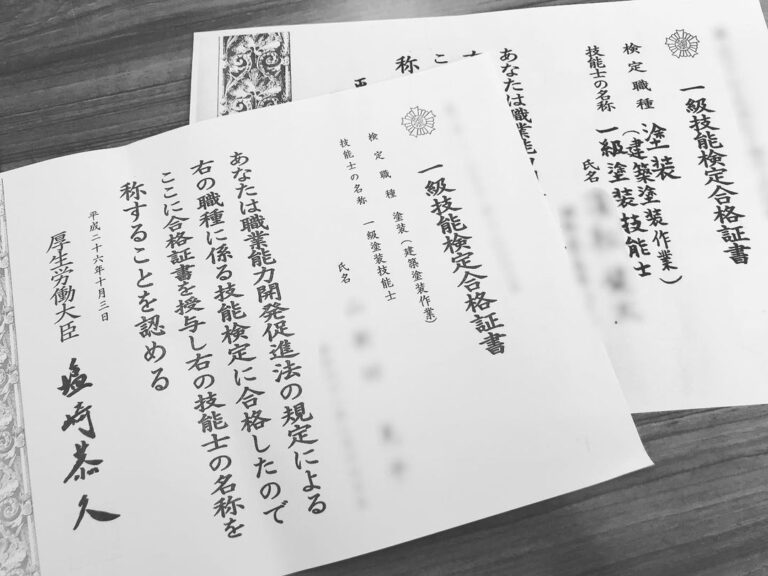 一級技能検定合格証書
検定職種 塗装(建築塗装作業)
技能士の名称 一級塗装技能士
氏名
あなたは職業能力開発促進法の規定による
右の職種に係る技能検定に合格したので
ここに合格証書を授与し右の技能士の名称を
称することを認める
平成二十六年十月三日
厚生労働大臣 塩崎恭久
一級技能検定合格証書
検定職種 塗装(建築塗装作業)
技能士の名称 一級塗装技能士
氏名
あなたは職業能
称